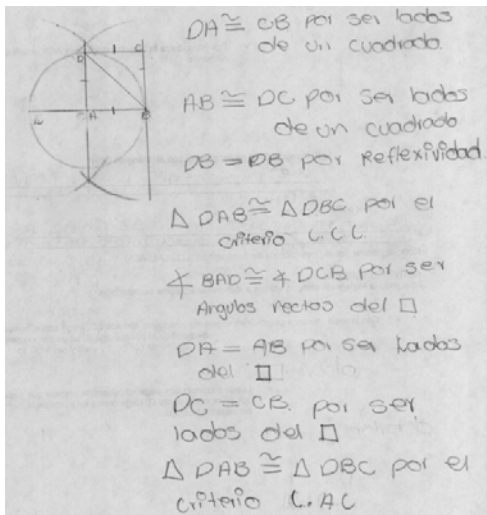 DA ≅ CB por ser lados
de un cuadrado.
AB ≅ DC por ser lados
de un cuadrado
DB = DB por Reflexividad.
△ DAB ≅ △ DBC por el
criterio L.L.L.
∡ BAD ≅ ∡ DCB por ser
Angulos rectos del □
DA = AB por ser Lados
del □
DC = CB. por ser
lados del □
△ DAB ≅ △ DBC por el
criterio L.AL
D
C
A
B